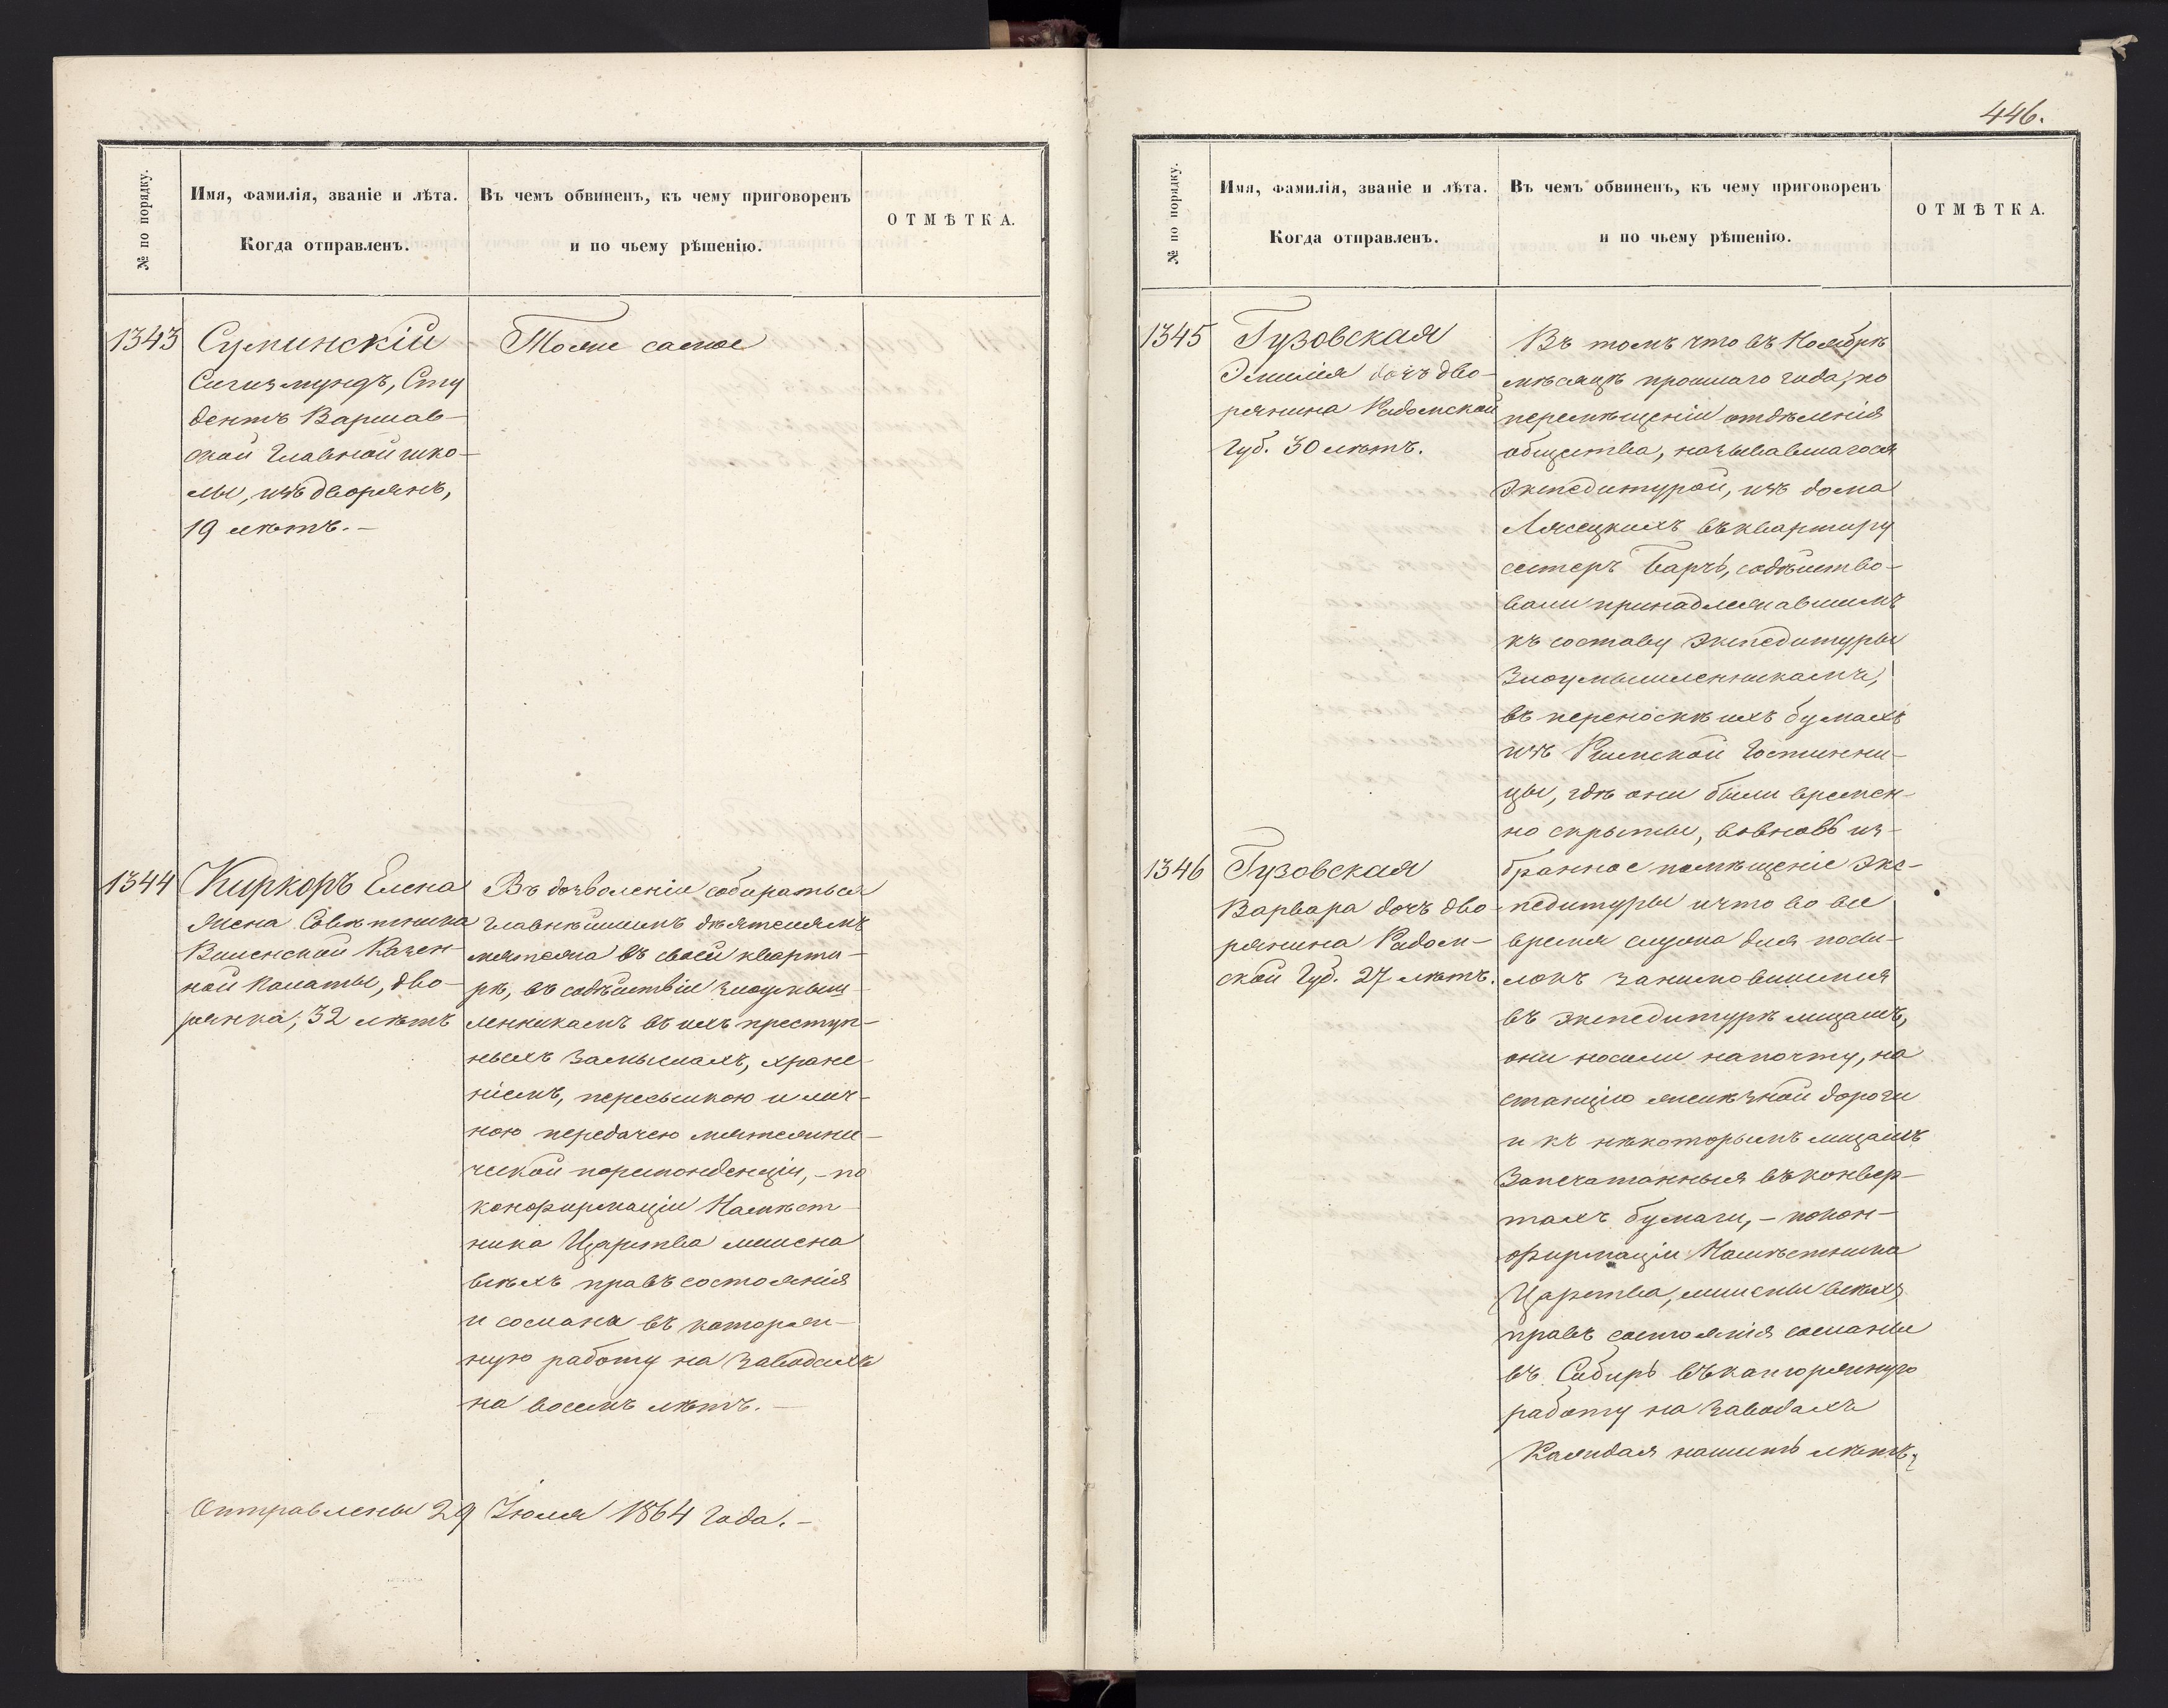 № по порядку.
Имя, фамилія, званіе и лѣта.
Когда отправленъ.
Въ чемъ обвиненъ, къ чему приговоренъ
и по чьему рѣшенію.
ОТМѢТКА.
1343
Суминскій
Сигизмундъ, Сту
дентъ Варшав-
ской Главной шко-
лы, изъ дворянъ,
19 лѣтъ. –
Тоже самое
1344
Киркоръ Елена
жена Совѣтника
Виленской Казен-
ной Палаты, дво-
рянка, 32 лѣтъ
Въ дозволеніи собираться
главнѣйшимъ дѣятелямъ
мятежа въ своей кварти-
рѣ, въ содѣйствіи злоумыш-
ленникамъ въ ихъ преступ-
ныхъ замыслахъ, хране-
ніемъ, пересылкою и лич-
ною передачею мятежни-
ческой кореспонденціи, – по
конфирмаціи Намѣст-
ника Царства лишена
всѣхъ правъ состоянія
и сослана въ каторж-
ную работу на заводахъ
на восемь лѣтъ. –
Отправлены 29 Іюля 1864 года. –
446.
№ по порядку.
Имя, фамилія, званіе и лѣта.
Когда отправленъ.
Въ чемъ обвиненъ, къ чему приговоренъ
и по чьему рѣшенію.
ОТМѢТКА.
1345
Гузовская
Эмилія дочь дво-
рянина Радомской
Губ. 30 лѣтъ.
Въ томъ что въ Ноябрѣ
мѣсяцѣ прошлаго года, по
перемѣщеніи отдѣленія
общества, называвшагося
Экспедитурой, изъ дома
Лясецкихъ въ квартиру
сестеръ Барчъ, содѣйство-
вали принадлежавшимъ
къ составу Экспедитуры
злоумышленникамъ,
въ переноскѣ ихъ бумагъ
изъ Римской Гостинни-
цы, гдѣ они были времен-
но скрыты, во вновь из-
бранное помѣщеніе Экс-
педитуры и что во все
время служа для посы-
локъ занимавшимся
въ экспедитурѣ лицамъ,
они носили на почту, на
станцію желѣзной дороги
и къ нѣкоторымъ лицамъ
запечатанныя въ конвер-
тахъ бумаги, – по кон-
фирмаціи Намѣстника
Царства, лишены всѣхъ
правъ состоянія сосланы
въ Сибирь въ каторжную
работу на заводахъ
Каждая на шесть лѣтъ,
1346
Гузовская
Варвара дочь дво-
рянина Радом-
ской Губ. 27 лѣтъ.